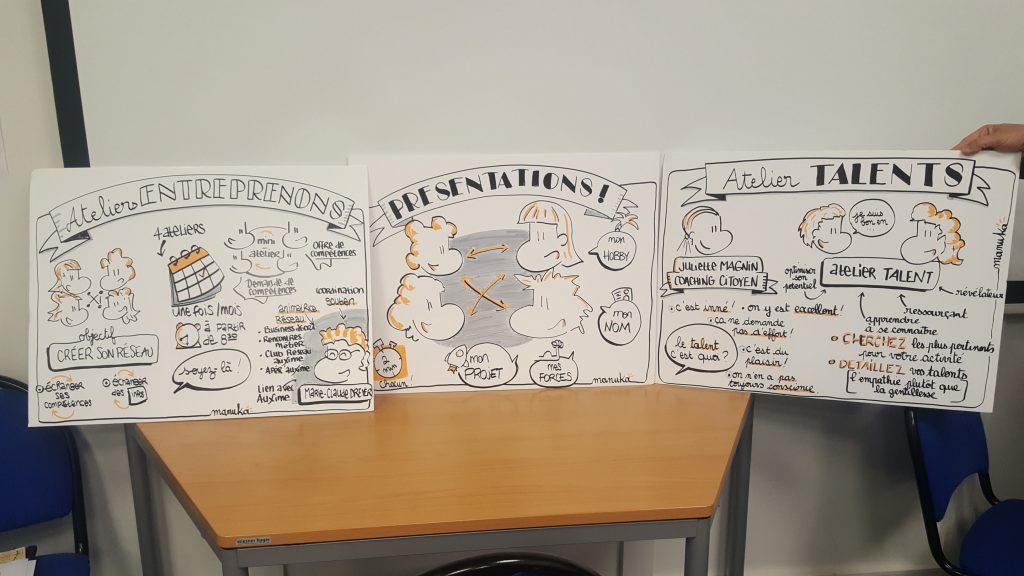 Atelier ENTREPRENONS
4 ateliers
UNE FOIS/MOIS
à PARTIR
de 8h30
mini
atelier
OFFRE de
COMPÉTENCES
Demande de
compétences
objectif
CRÉER SON RÉSEAU
ÉCHANGER
SES
COMPÉTENCES
ÉCHANGER
des
INFOS
soyez là !
COORDINATION
soutien
animatrice
Réseau
Rencontres
métier
Club Réseau
Auxime
Apér'Auxime
Lien avec
Auxime
MARIE-CLAUDE DREYER
manuka
PRÉSENTATIONS !
mon
HOBBY
mon
NOM
mes
FORCES
mon
PROJET
Chacun !
manuka
Atelier TALENTS
JULIETTE MAGNIN
COACHING CITOYEN
je suis
bon en
...
optimiser
son
potentiel
atelier TALENT
révélateur
ressourçant
apprendre
à se connaître
• c'est inné !
• on y est excellent !
• ça ne demande
pas d'effort !
• c'est du
plaisir !
• on n'en a pas
toujours conscience
le talent
c'est quoi ?
CHERCHEZ les plus pertinents
pour votre activité
DÉTAILLEZ vos talents
l'empathie plutôt que
la gentillesse
manuka